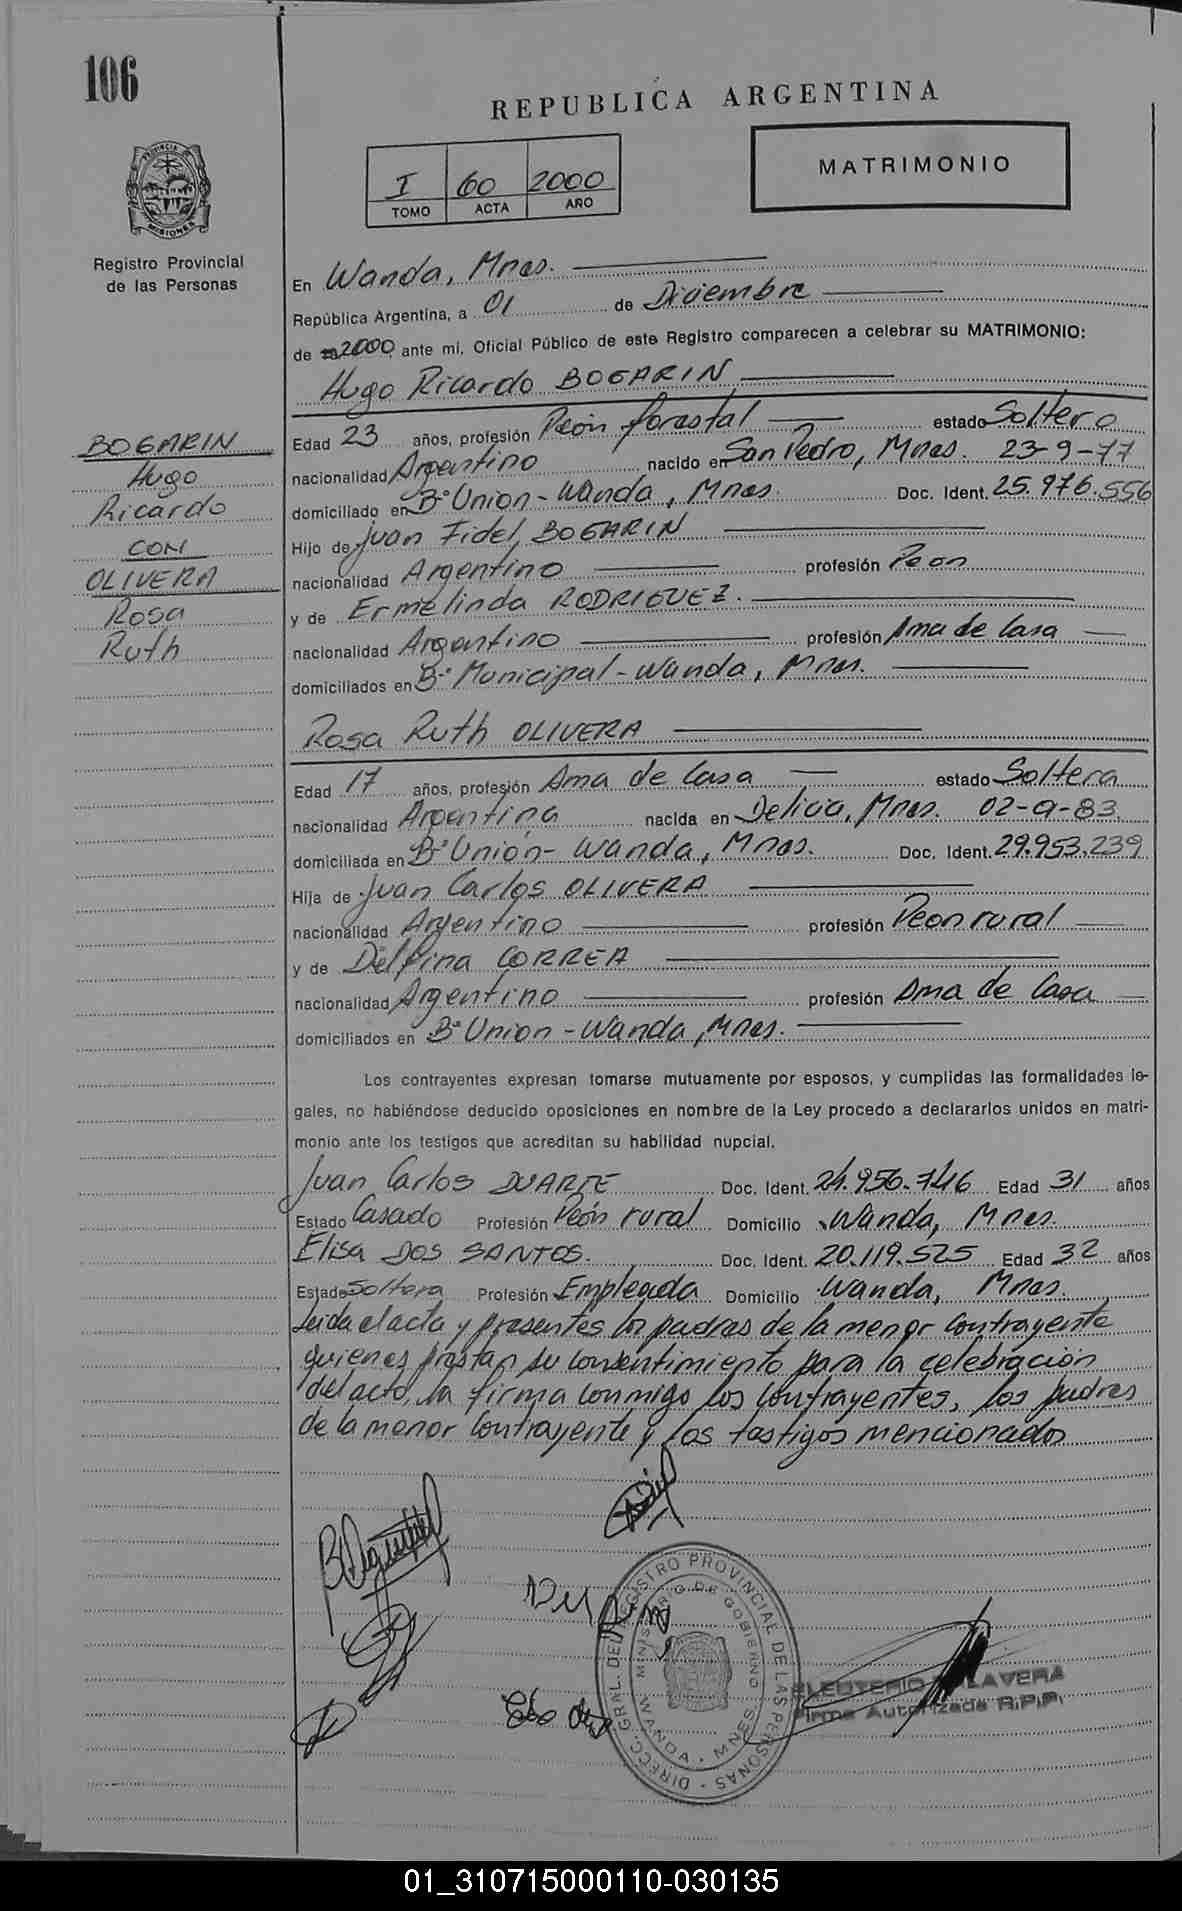 106
REPUBLICA ARGENTINA
I 60 2000
TOMO ACTA AÑO
MATRIMONIO
PROVINCIA
MISIONES
Registro Provincial
de las Personas
En Wanda, Mnes.
República Argentina, a 01 de Diciembre
de 2000 ante mi, Oficial Público de este Registro comparecen a celebrar su MATRIMONIO:
Hugo Ricardo BOGARIN
BOGARIN
Hugo
Ricardo
CON
OLIVERA
Rosa
Ruth
Edad 23 años, profesión Peón forestal estado Soltero
nacionalidad Argentino nacido en San Pedro, Mnes. 23-9-77
domiciliado en Bº Union - Wanda, Mnes. Doc. Ident. 25.976.556
Hijo de Juan Fidel BOGARIN
nacionalidad Argentino profesión Peon
y de Ermelinda RODRIGUEZ.
nacionalidad Argentino profesión Ama de Casa
domiciliados en Bº Municipal - Wanda, Mnes.
Rosa Ruth OLIVERA
Edad 17 años, profesión Ama de Casa estado Soltera
nacionalidad Argentina nacida en Delicia, Mnes. 02-9-83
domiciliada en Bº Unión - Wanda, Mnes. Doc. Ident. 29.953.239
Hija de Juan Carlos OLIVERA
nacionalidad Argentino profesión Peon rural
y de Delfina CORREA
nacionalidad Argentino profesión Ama de Casa
domiciliados en Bº Union - Wanda, Mnes.
Los contrayentes expresan tomarse mutuamente por esposos, y cumplidas las formalidades le-
gales, no habiéndose deducido oposiciones en nombre de la Ley procedo a declararlos unidos en matri-
monio ante los testigos que acreditan su habilidad nupcial.
Juan Carlos DUARTE Doc. Ident. 24.956.746 Edad 31 años
Estado Casado Profesión Peón rural Domicilio Wanda, Mnes.
Elisa DOS SANTOS. Doc. Ident. 20.119.525 Edad 32 años
Estado Soltera Profesión Empleada Domicilio Wanda, Mnes.
Leida el acta y presentes los padres de la menor contrayente
quienes prestan su consentimiento para la celebración
del acto, la firma conmigo los contrayentes, los padres
de la menor contrayente y los testigos mencionados
DIRECC. GRAL. DEL REGISTRO PROVINCIAL DE LAS PERSONAS
MINISTERIO DE GOBIERNO
WANDA - MNES.
ELEUTERIO TALAVERA
Firma Autorizada R.P.P.
01_310715000110-030135